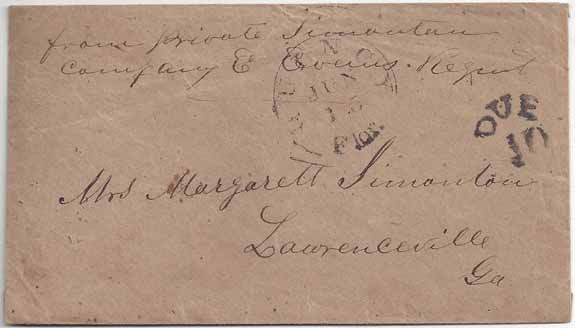 from private Simonton
Company E Evans Regmt
JUN
DUE
10
Mrs Margarett Simonton
Lawrenceville
Ga